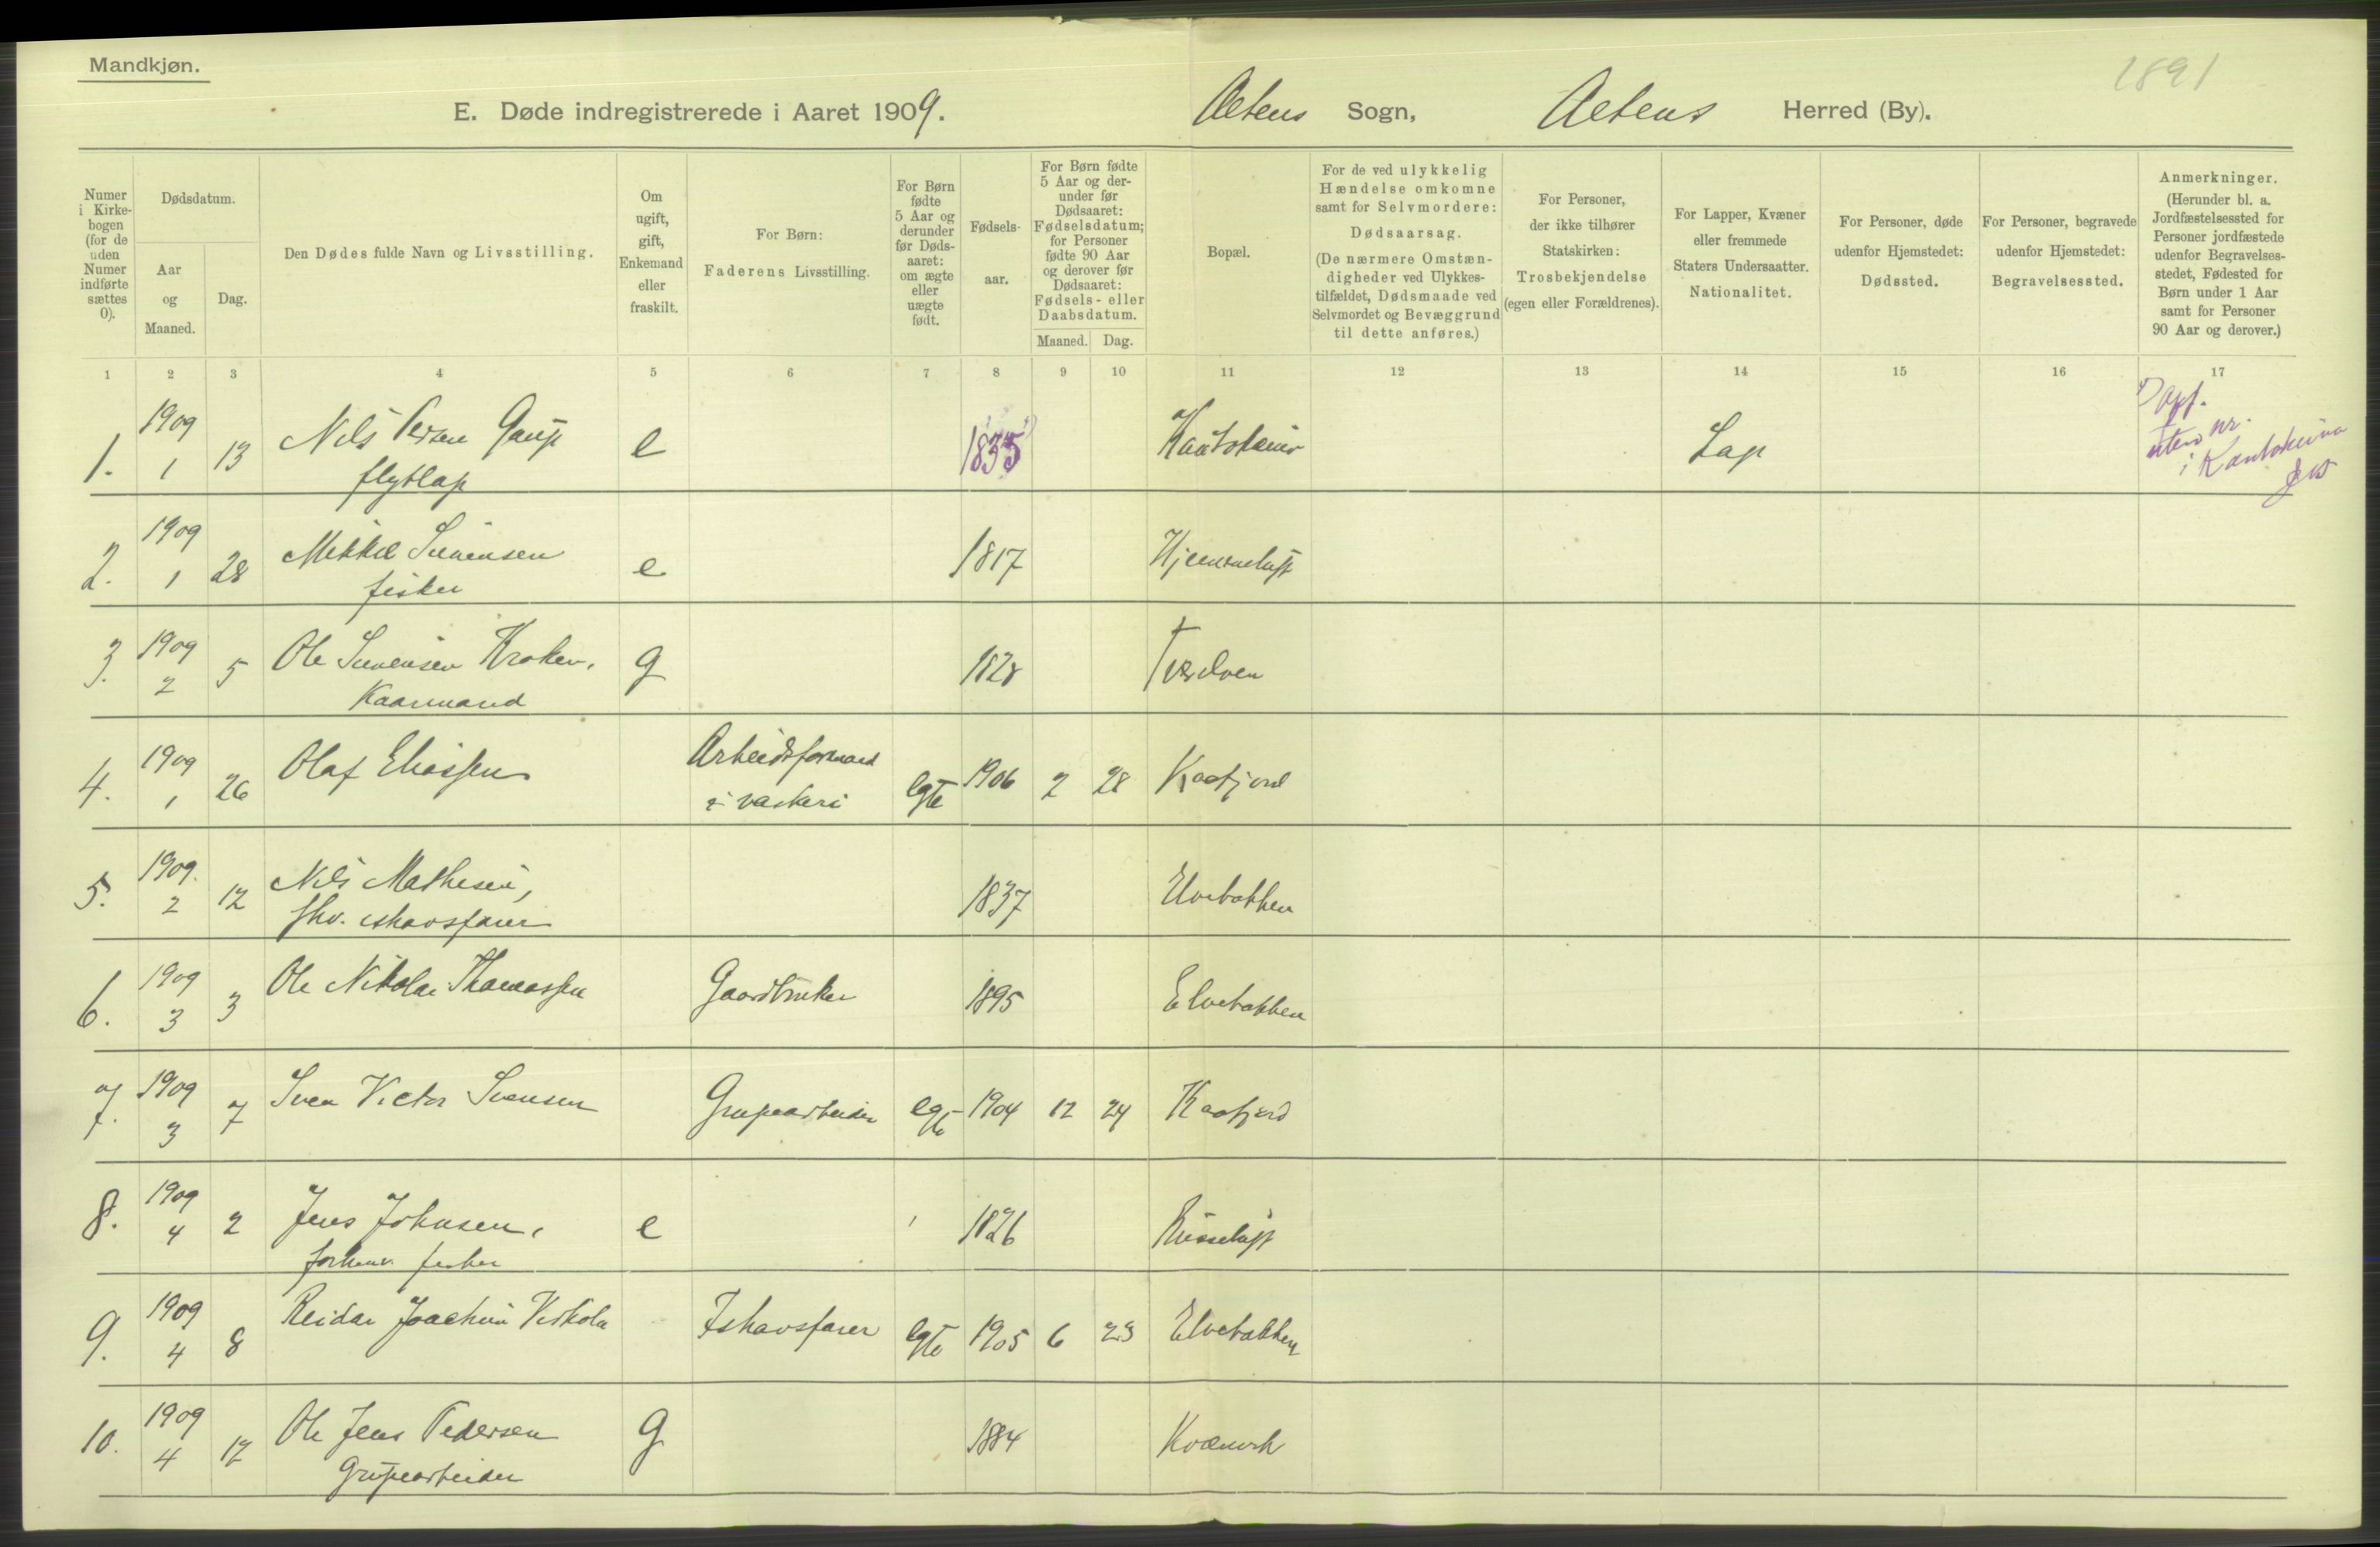 Mandkjøn.
1891
E. Døde indregistrerede i Aaret 1909.
Altens Sogn, Altens Herred (By).
Numer i Kirke-
bogen
(for de
uden
Numer
indførte
sættes
0).
Dødsdatum.
Aar
og
Maaned.
Dag.
Den Dødes fulde Navn og Livsstilling.
Om
ugift,
gift,
Enkemand
eller
fraskilt.
For Børn:
Faderens Livsstilling.
For Børn
fødte
5 Aar og
derunder
før Døds-
aaret:
om ægte
eller
uægte
født.
Fødsels-
aar.
For Børn fødte
5 Aar og der-
under før
Dødsaaret:
Fødselsdatum;
for Personer
fødte 90 Aar
og derover før
Dødsaaret:
Fødsels- eller
Daabsdatum.
Maaned. Dag.
Bopæl.
For de ved ulykkelig
Hændelse omkomne
samt for Selvmordere:
Dødsaarsag.
(De nærmere Omstæn-
digheder ved Ulykkes-
tilfældet, Dødsmaade ved
Selvmordet og Bevæggrund
til dette anføres.)
For Personer,
der ikke tilhører
Statskirken:
Trosbekjendelse
(egen eller Forældrenes).
For Lapper, Kvæner
eller fremmede
Staters Undersaatter.
Nationalitet.
For Personer, døde
udenfor Hjemstedet:
Dødssted.
For Personer, begravede
udenfor Hjemstedet:
Begravelsessted.
Anmerkninger.
(Herunder bl. a.
Jordfæstelsessted for
Personer jordfæstede
udenfor Begravelses-
stedet, Fødested for
Børn under 1 Aar
samt for Personer
90 Aar og derover.)
1 2 3 4 5 6 7 8 9 10 11 12 13 14 15 16 17
1. 1909 1 13 Nils Persen Gaup e 1835 Kautokeino Lap
flytlap
opf.
uten nr.
i Kautokeino
2. 1909 1 28 Mikkel Simensen e 1817
fisker
3. 1909 2 5 Ole Simensen Kroken, g 1828 Tverelven
Kaarmand
4. 1909 1 26 Olaf Eliassen Arbeidsformand egte 1906 2 28 Kaafjord
i vaskeri
5. 1909. 2 12 Nils Mathisen, 1837 Elvebakken
fhv. ishavsfarer
6. 1909 3 3 Ole Nikolai Thomassen Gaardbruker 1895 Elvebakken
7. 1909 3 7 Sven Victor Svensen Grupearbeider egte 1904 12 24 Kaafjord
8. 1909 4 2 Jens Johnsen, e 1826 Russeluft
forhenv. fisker
9. 1909 4 8 Reidar Joachim Viskola Ishavsfarer egte 1905 6 23 Elvebakken
10. 1909 4 12 Ole Jens Pedersen g 1884 Kvænvik
Grupearbeider